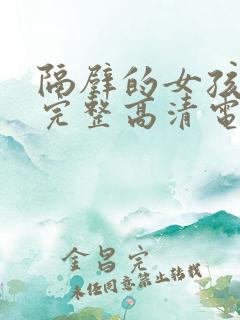 隔壁的女孩
完整高清电
金昌完
未经同意禁止转载